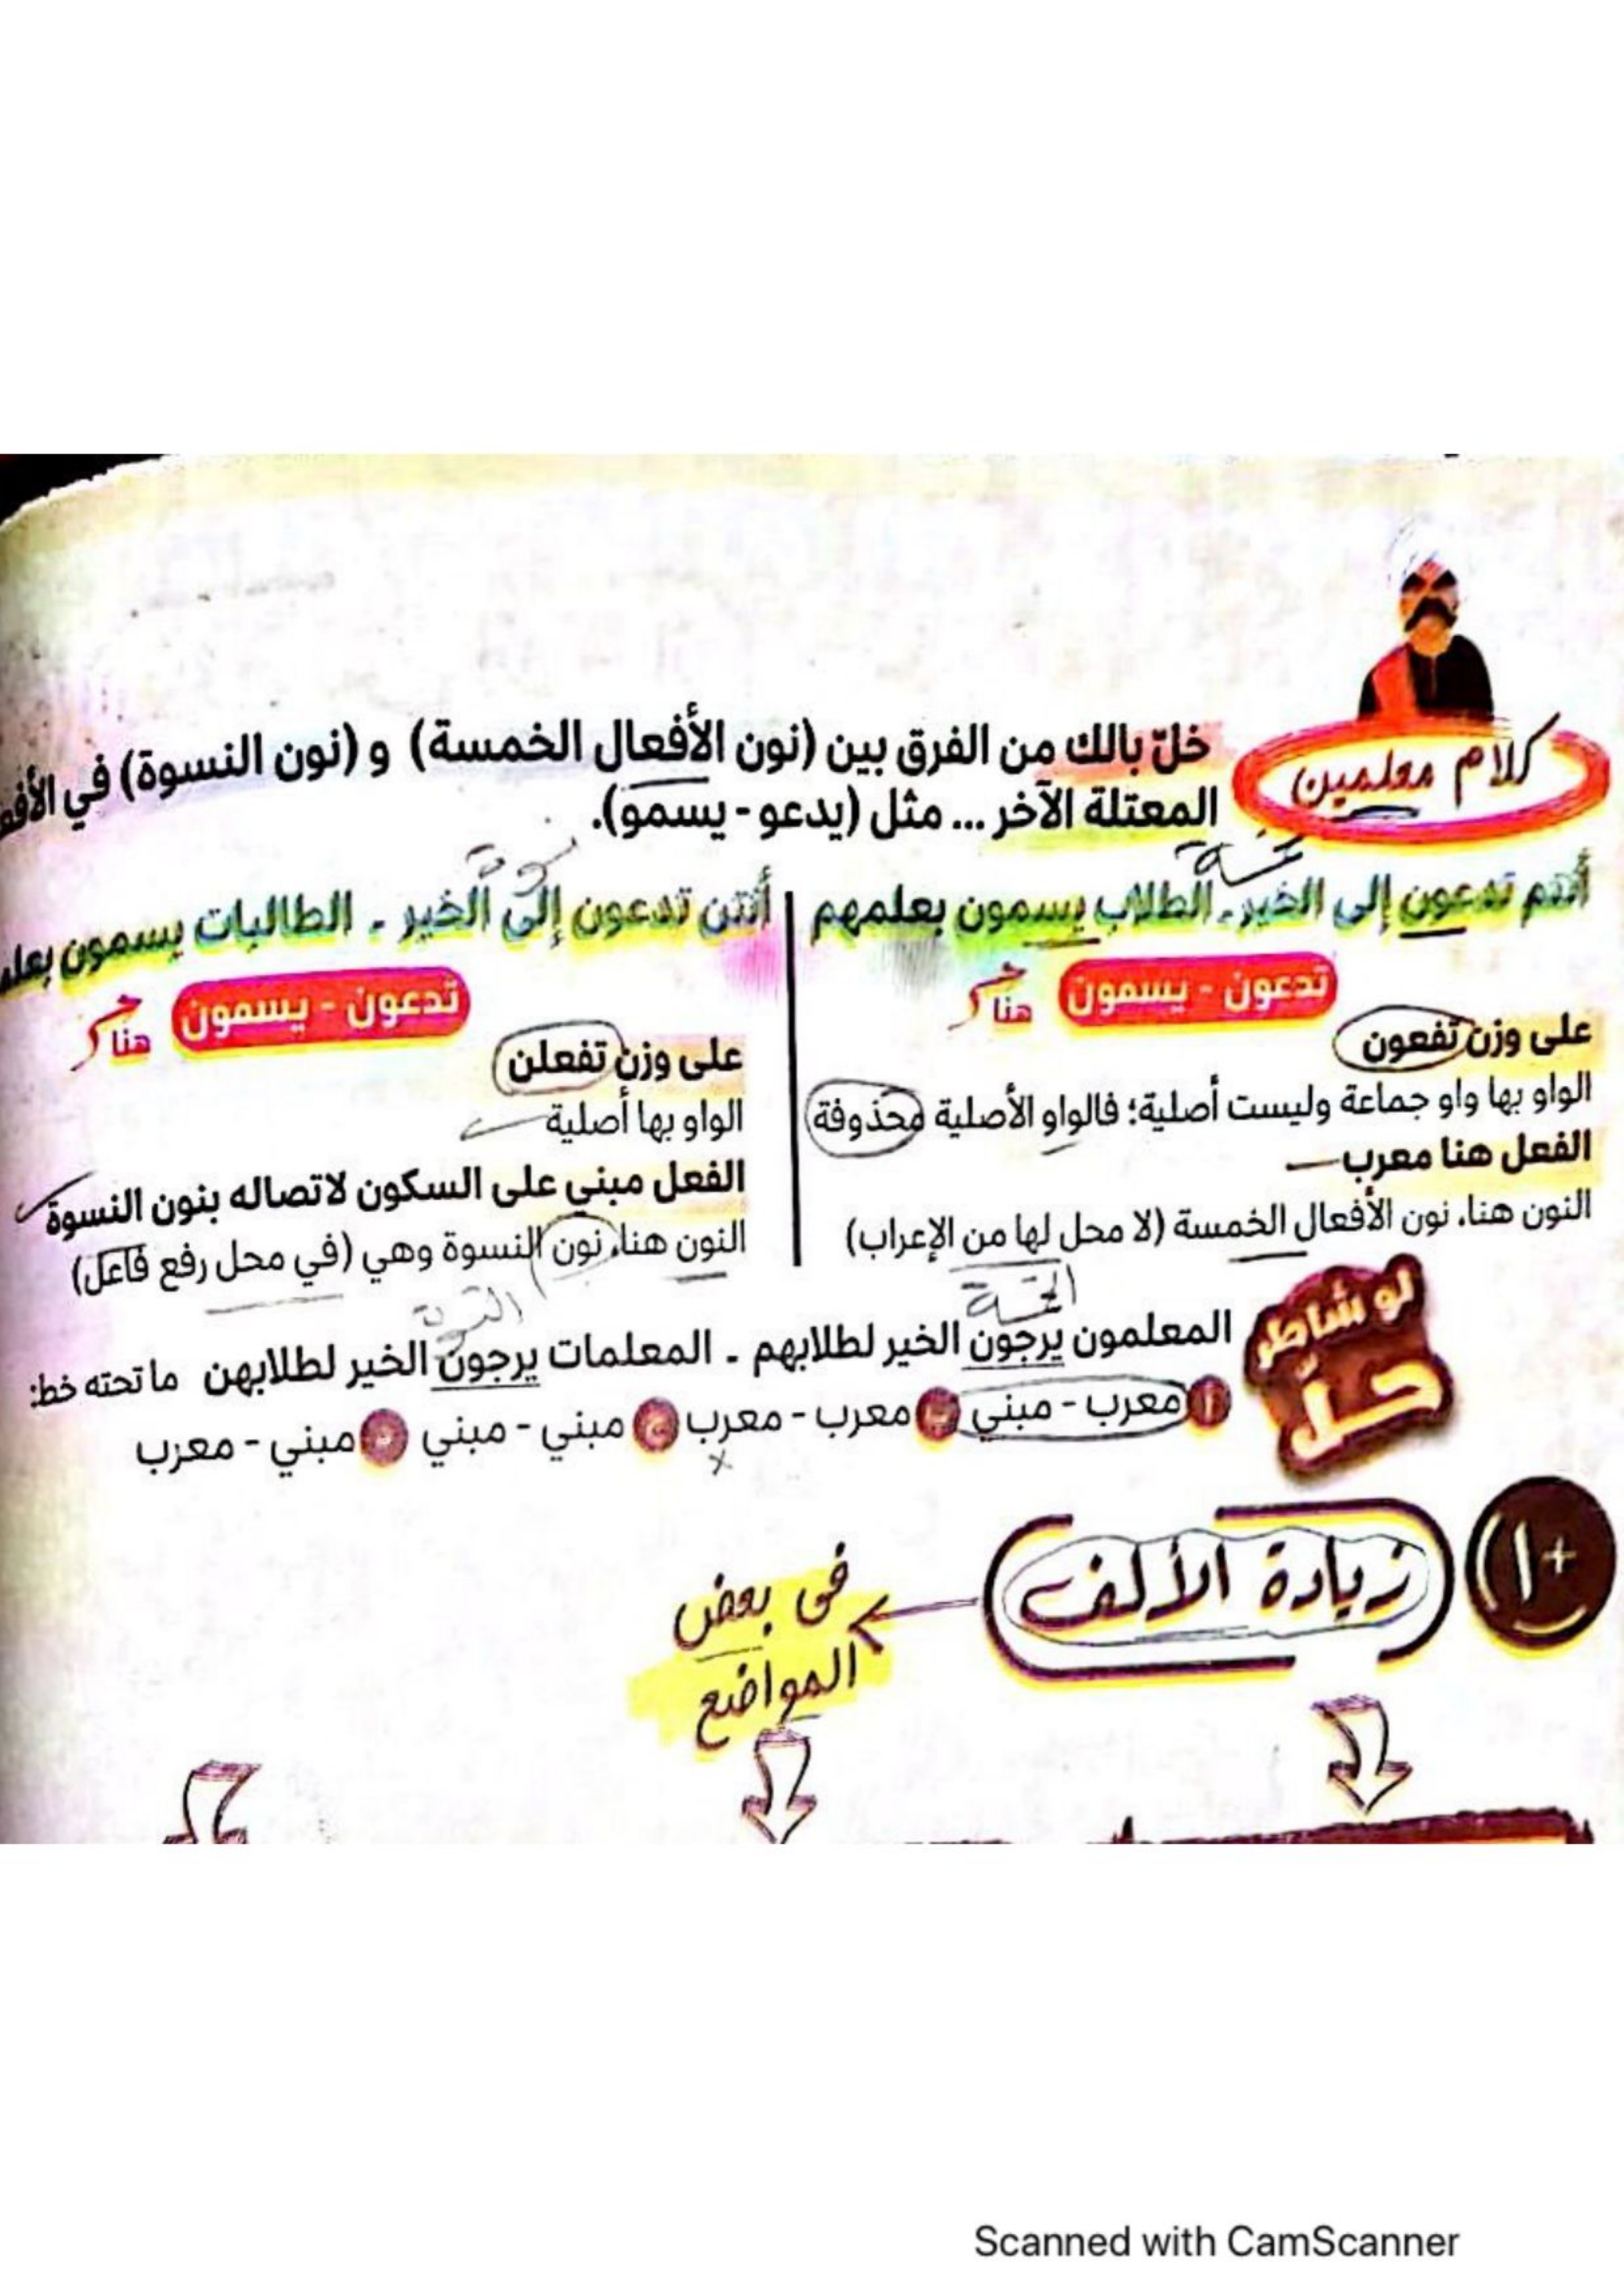 كلام معلمين
خلّ بالك من الفرق بين (نون الأفعال الخمسة) و (نون النسوة) في
المعتلة الآخر ... مثل (يدعو - يسمو).
أنتم تدعون إلى الخير - الطلاب يسمون بعلمهم
تدعون - يسمون هنا
على وزن تفعون
الواو بها واو جماعة وليست أصلية؛ فالواو الأصلية محذوفة
الفعل هنا معرب
النون هنا، نون الأفعال الخمسة (لا محل لها من الإعراب)
أنتن تدعون إلى الخير - الطالبات يسمون
تدعون - يسمون هنا
على وزن تفعلن
الواو بها أصلية
الفعل مبني على السكون لاتصاله بنون النسوة
النون هنا، نون النسوة وهي (في محل رفع فاعل)
لو شاطر
حلّ
المعلمون يرجون الخير لطلابهم - المعلمات يرجون الخير لطلابهن ما تحته خط:
أ معرب - مبني ب معرب - معرب ج مبني - مبني د مبني - معرب
+١ زيادة الألف
في بعض
المواضع
Scanned with CamScanner